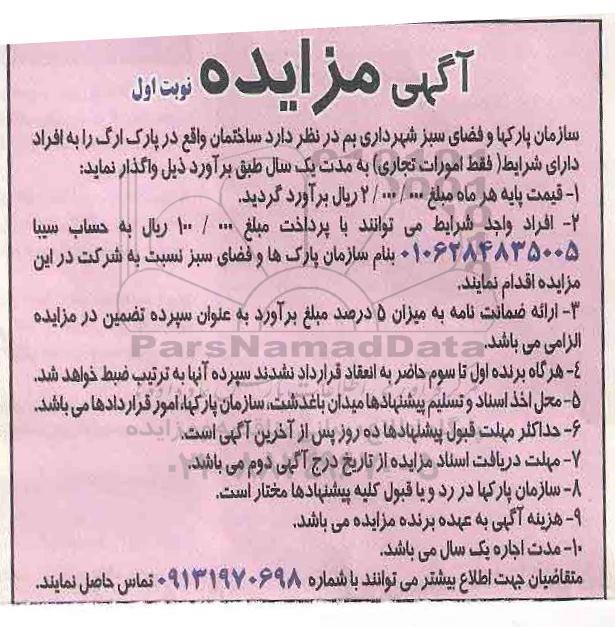 آگهی مزایده نوبت اول
سازمان پارکها و فضای سبز شهرداری بم در نظر دارد ساختمان واقع در پارک ارگ را به افراد
دارای شرایط( فقط امورات تجاری) به مدت یک سال طبق برآورد ذیل واگذار نماید:
۱- قیمت پایه هر ماه مبلغ ۲/۰۰۰/۰۰۰ ریال برآورد گردید.
۲- افراد واجد شرایط می توانند با پرداخت مبلغ ۱۰۰/۰۰۰ ریال به حساب سیبا
۰۱۰۶۲۸۴۸۳۵۰۰۵ بنام سازمان پارک ها و فضای سبز نسبت به شرکت در این
مزایده اقدام نمایند.
۳- ارائه ضمانت نامه به میزان ۵ درصد مبلغ برآورد به عنوان سپرده تضمین در مزایده
الزامی می باشد.
ParsNamadData
۴- هرگاه برنده اول تا سوم حاضر به انعقاد قرارداد نشدند سپرده آنها به ترتیب ضبط خواهد شد.
۵- محل اخذ اسناد و تسلیم پیشنهادها میدان باغدشت، سازمان پارکها، امور قراردادها می باشد.
۶- حداکثر مهلت قبول پیشنهادها ده روز پس از آخرین آگهی است.
۷- مهلت دریافت اسناد مزایده از تاریخ درج آگهی دوم می باشد.
۸- سازمان پارکها در رد و یا قبول کلیه پیشنهادها مختار است.
۹- هزینه آگهی به عهده برنده مزایده می باشد.
۱۰- مدت اجاره یک سال می باشد.
متقاضیان جهت اطلاع بیشتر می توانند با شماره ۰۹۱۳۱۹۷۰۶۹۸ تماس حاصل نمایند.